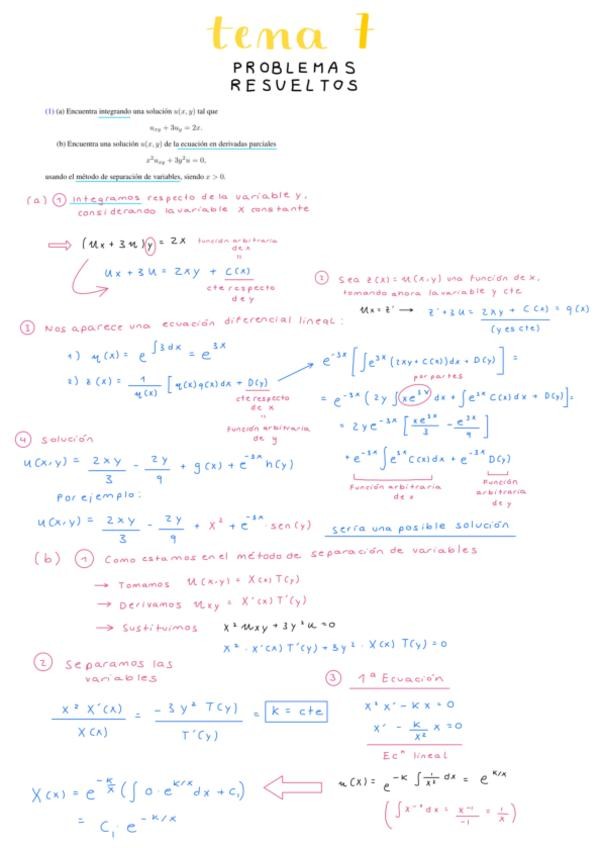 tema 7
PROBLEMAS
RESUELTOS
(1) (a) Encuentra integrando una solución u(x, y) tal que
u_xy + 3u_y = 2x.
(b) Encuentra una solución u(x, y) de la ecuación en derivadas parciales
x²u_xy + 3y²u = 0,
usando el método de separación de variables, siendo x > 0.
(a) ① Integramos respecto de la variable y,
considerando la variable x constante
⇒ (ux + 3u)y = 2x
función arbitraria
de x
"
ux + 3u = 2xy + C(x)
cte respecto
de y
② Sea z(x) = u(x,y) una función de x,
tomando ahora la variable y cte
ux = z' → z' + 3u = 2xy + C(x) = q(x)
(y es cte)
③ Nos aparece una ecuación diferencial lineal:
1) η(x) = e^∫3dx = e^3x
2) z(x) = 1/η(x) [η(x)q(x)dx + D(y)
cte respecto
de x
"
función arbitraria
de y
e^-3x [∫e^3x (2xy + C(x))dx + D(y)] =
por partes
= e^-3x (2y ∫xe^3x dx + ∫e^3x C(x)dx + D(y)] =
= 2ye^-3x [xe^3x/3 - e^3x/9]
+ e^-3x ∫e^3x C(x)dx + e^-3x D(y)
Función arbitraria
de x
Función
arbitraria
de y
④ solución
u(x,y) = 2xy/3 - 2y/9 + g(x) + e^-3x h(y)
Por ejemplo:
u(x,y) = 2xy/3 - 2y/9 + x² + e^-3x · sen(y)
sería una posible solución
(b) ① Como estamos en el método de separación de variables
→ Tomamos u(x,y) = X(x) T(y)
→ Derivamos uxy = X'(x) T'(y)
→ Sustituimos x² uxy + 3y² u = 0
x² · X'(x) T'(y) + 3y² · X(x) T(y) = 0
② Separamos las
variables
x² X'(x)/X(x) = -3y² T(y)/T'(y) = k = cte
③ 1ª Ecuación
x² x' - kx = 0
x' - k/x² x = 0
Ecⁿ lineal
u(x) = e^-k ∫1/x² dx = e^k/x
(∫x^-2 dx = x^-1/-1 = 1/x)
X(x) = e^-k/x (∫0·e^k/x dx + C₁)
= C₁ · e^-k/x